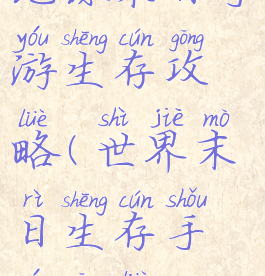 yóu shēng cún gōng
游生存攻
lüè shì jiè mò
略(世界末
rì shēng cún shǒu
日生存手